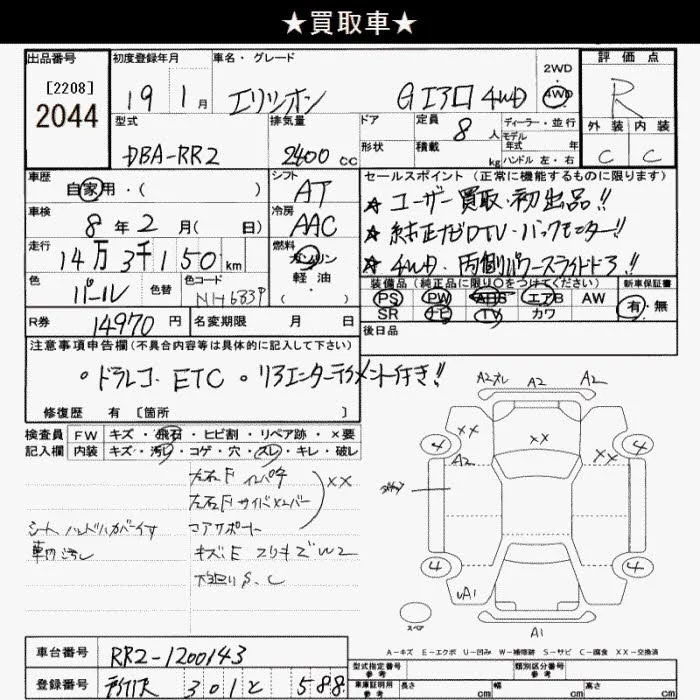 ★買取車★
出品番号
[2208]
2044
初度登録年月
19 1月
車名・グレード
エリシオン Gエアロ 4WD
2WD
4WD
評価点
R
外装 内装
C C
型式
DBA-RR2
排気量
2400 cc
ドア
形状
定員
8 人
積載
kg
ディーラー・並行
モデル
年式 年
ハンドル 左・右
車歴
自家用・( )
シフト
AT
車検
8年2月( 日)
冷房
AAC
走行
14万3千150km
燃料
ガソリン
軽・油
( )
色
パール
色替
色コード
NH683P
セールスポイント (正常に機能するものに限ります)
★ユーザー買取・初出品!!
★純正ナビDTV・バックモニター!!
★4WD・両側パワースライドドア!!
装備品(純正品に限り○をつけてください)
新車保証書
PS PW ABS エアB AW
有・無
SR ナビ TV カワ
後日品
R券
14970円
名変期限 月 日
注意事項申告欄(不具合内容等は具体的に記入して下さい)
・ドラレコ・ETC・リアエンターテイメント付き!!
修復歴 有 [箇所 ]
検査員
記入欄
FW キズ・飛石・ヒビ割・リペア跡・×要
内装 キズ・汚レ・コゲ・穴・スレ・キレ・破レ
左右Fインパネ
左右Fサイドメンバー
XX
コアサポート
シート
車内汚れ
キズE スリキズW2
S、C
A2ズレ A2 A2
4 XX XX 4
A2 XX
4 4
UA1
A1
スペア
A-キズ E-エクボ U-凹み W-補修跡 S-サビ C-腐食 XX-交換済
車台番号
RR2-1200143
登録番号
301 と 588
型式指定番号
参考
類別区分番号
参考
車庫証明用
参考
長さ cm
幅 cm
高さ cm